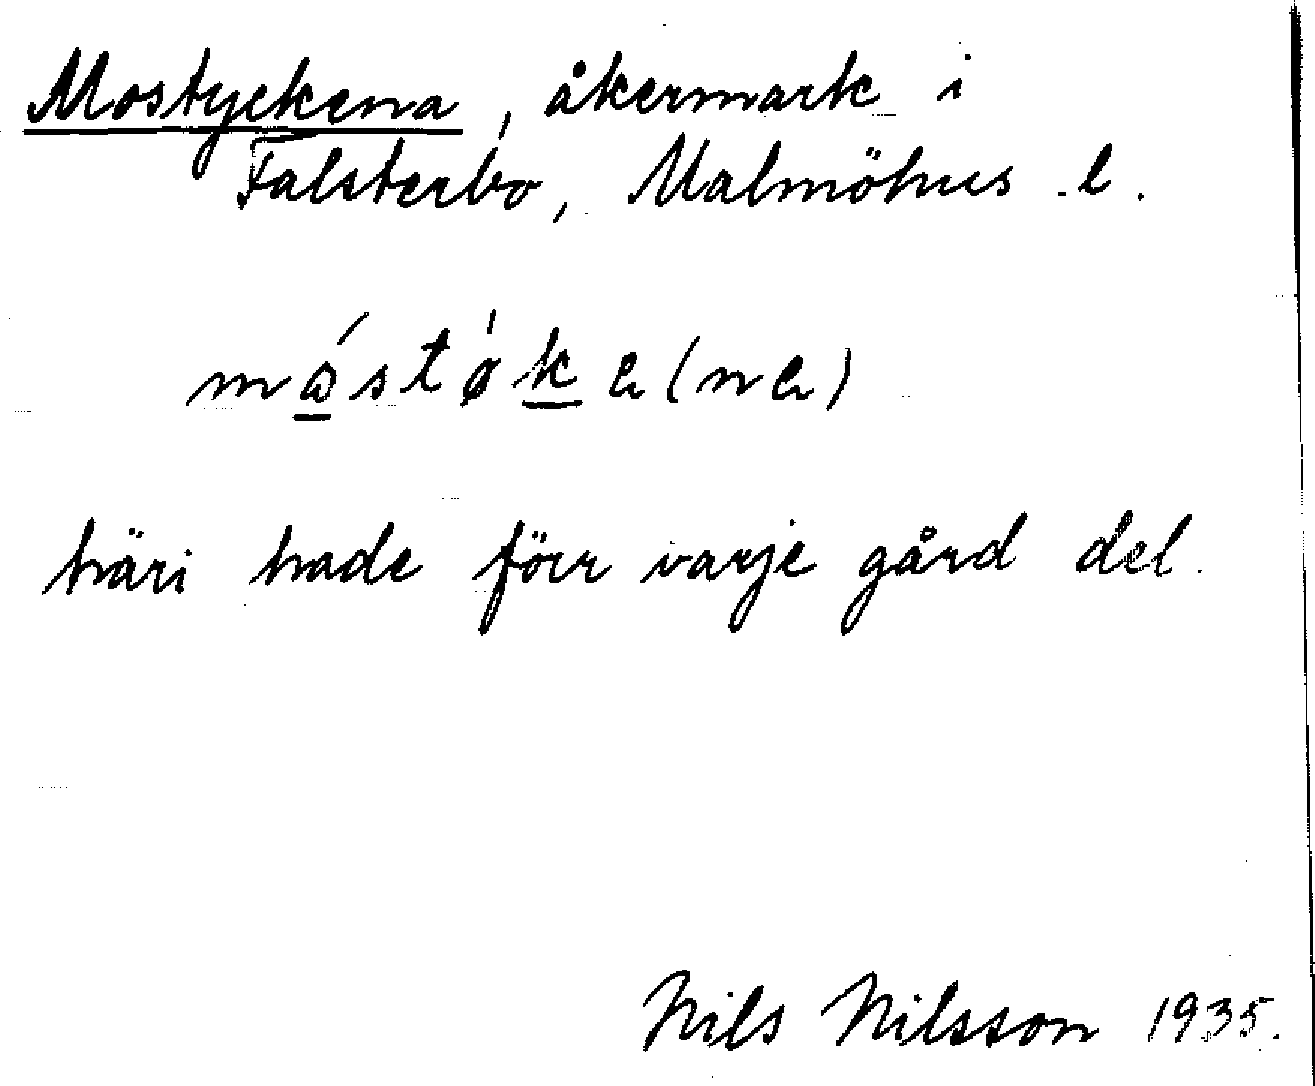 Mostyckena, åkermark i
Falsterbo, Malmöhus l.
häri hade förr varje gård del.
Nils Nilsson 1935.